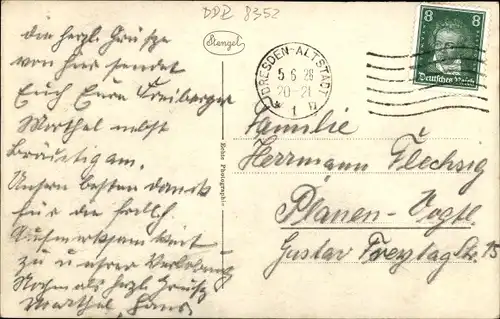 DDR 8352
die herzl. Grüße
von hier sendet
Euch Eure Freiberger
Marthel nebst
Bräutigam.
Unsern besten Dank
für die frdl.
Aufmerksamkeit
zu unsrer Verlobung
Nochmals herzl. Grüße
Marthel, Hans
Stengel
Echte Photographie
DRESDEN-ALTSTADT
5 6 28
20-21
* 1 n
8 8
Deutsches Reich
Familie
Herrmann Flechsig
Plauen-Vogtl.
Gustav Freytag Str. 15